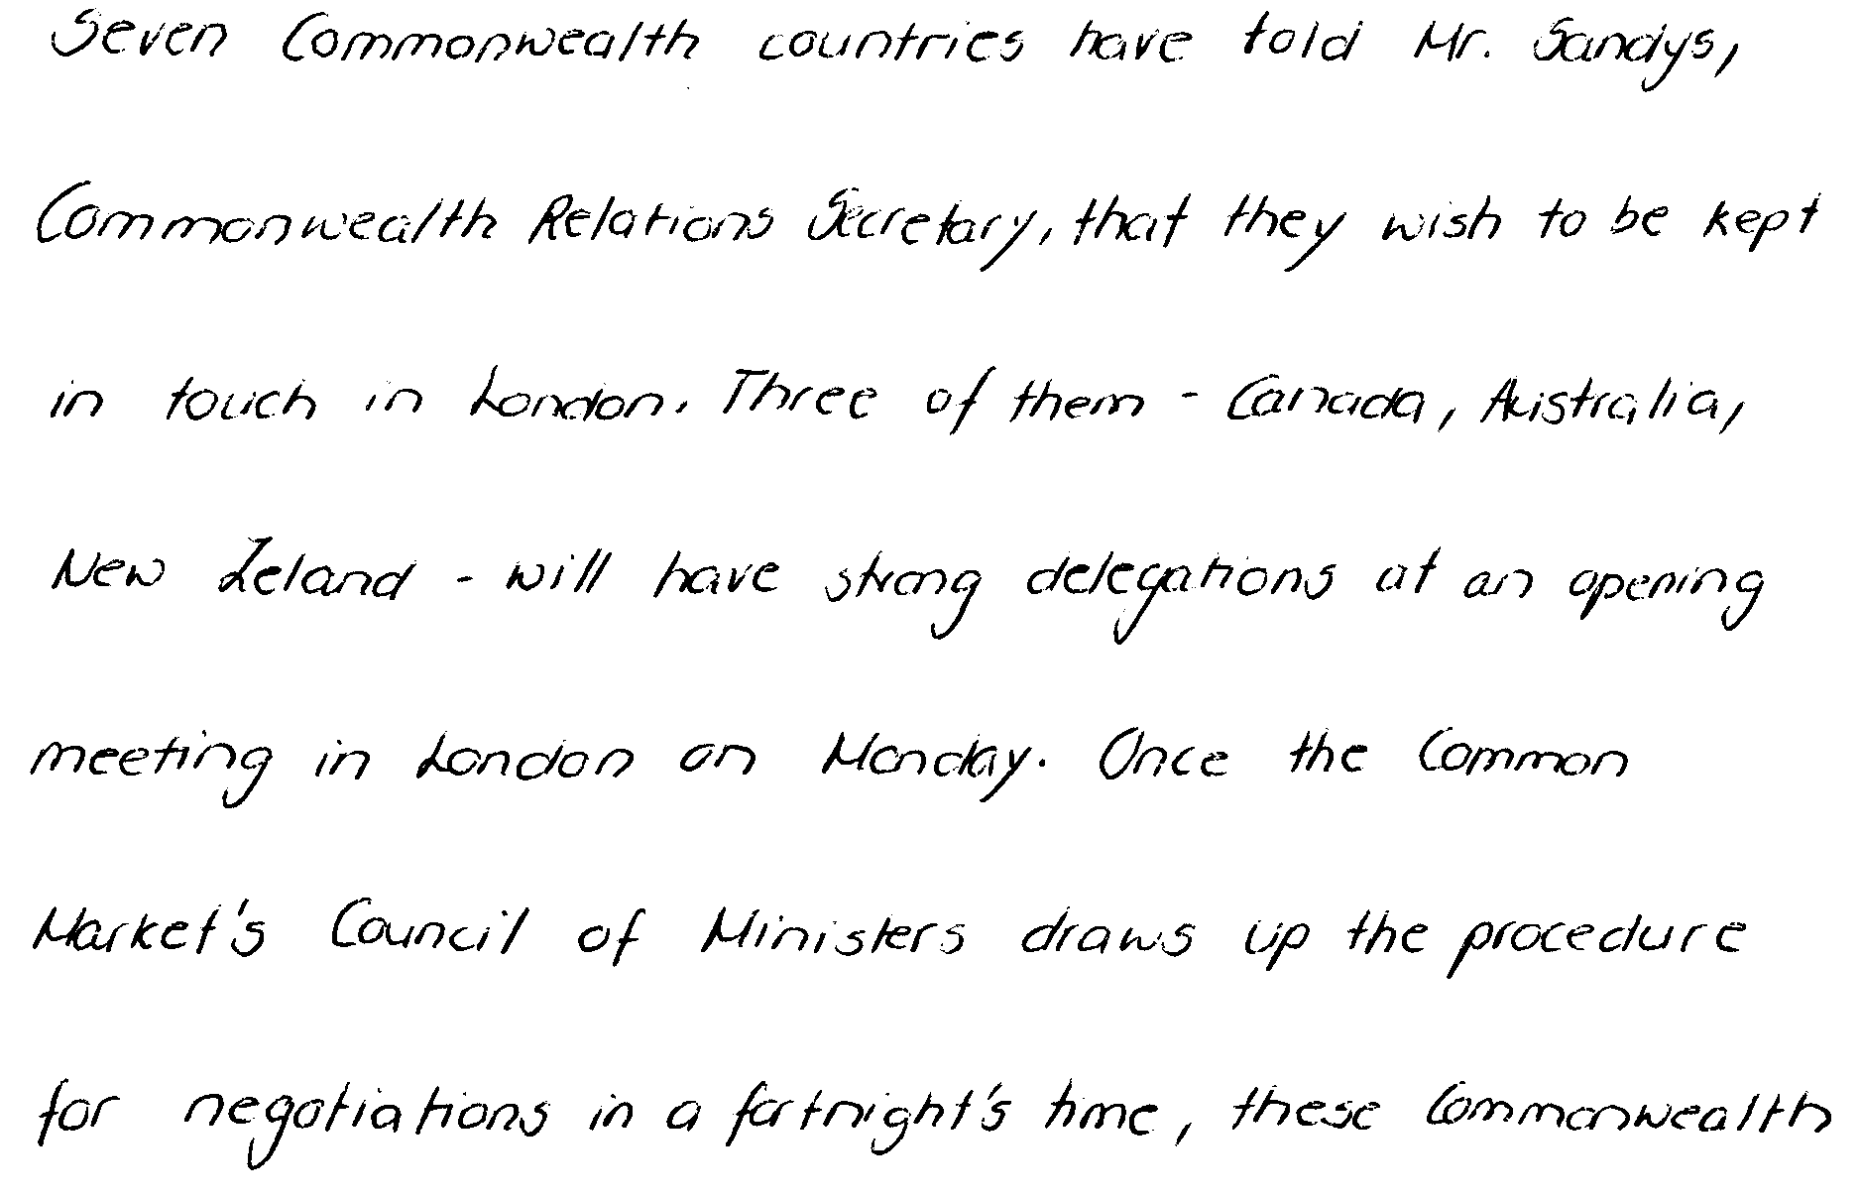 Seven Commonwealth countries have told Mr. Sandys,
Commonwealth Relations Secretary, that they wish to be kept
in touch in London. Three of them - Canada, Australia,
New Zeland - will have strong delegations at an opening
meeting in London on Monday. Once the Common
Market's Council of Ministers draws up the procedure
for negotiations in a fortnight's time, these Commonwealth